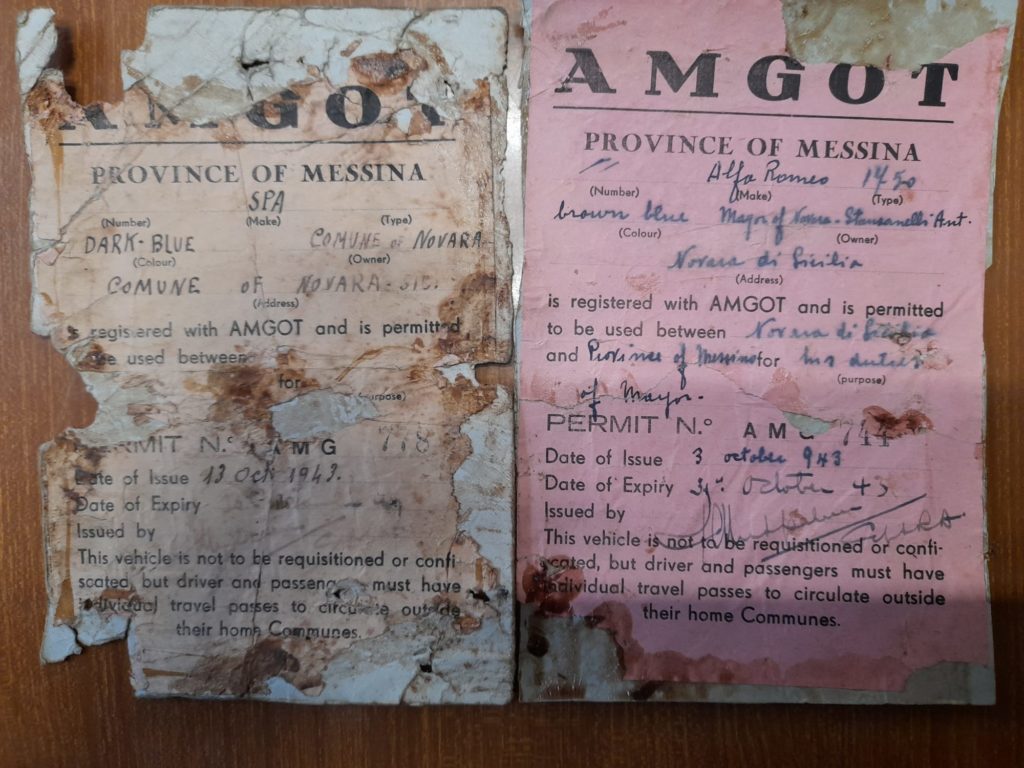 AMGOT
PROVINCE OF MESSINA
SPA
(Number) (Make) (Type)
DARK-BLUE COMUNE of NOVARA
(Colour) (Owner)
COMUNE OF NOVARA-SIC.
(Address)
is registered with AMGOT and is permitted
be used between
for
(purpose)
PERMIT N.º AMG 778
Date of Issue 13 Oct 1943.
Date of Expiry
Issued by
This vehicle is not to be requisitioned or confi-
scated, but driver and passengers must have
individual travel passes to circulate outside
their home Communes.
AMGOT
PROVINCE OF MESSINA
" Alfa Romeo 1750
(Number) (Make) (Type)
brown blue Mayor of Novara-Stancanelli Ant.
(Colour) (Owner)
Novara di Sicilia
(Address)
is registered with AMGOT and is permitted
to be used between Novara di Sicilia
and Province of Messina for his duties
(purpose)
of Mayor.
PERMIT N.º AMG 744
Date of Issue 3 october 943
Date of Expiry 31st October 43
Issued by
This vehicle is not to be requisitioned or confi-
scated, but driver and passengers must have
individual travel passes to circulate outside
their home Communes.